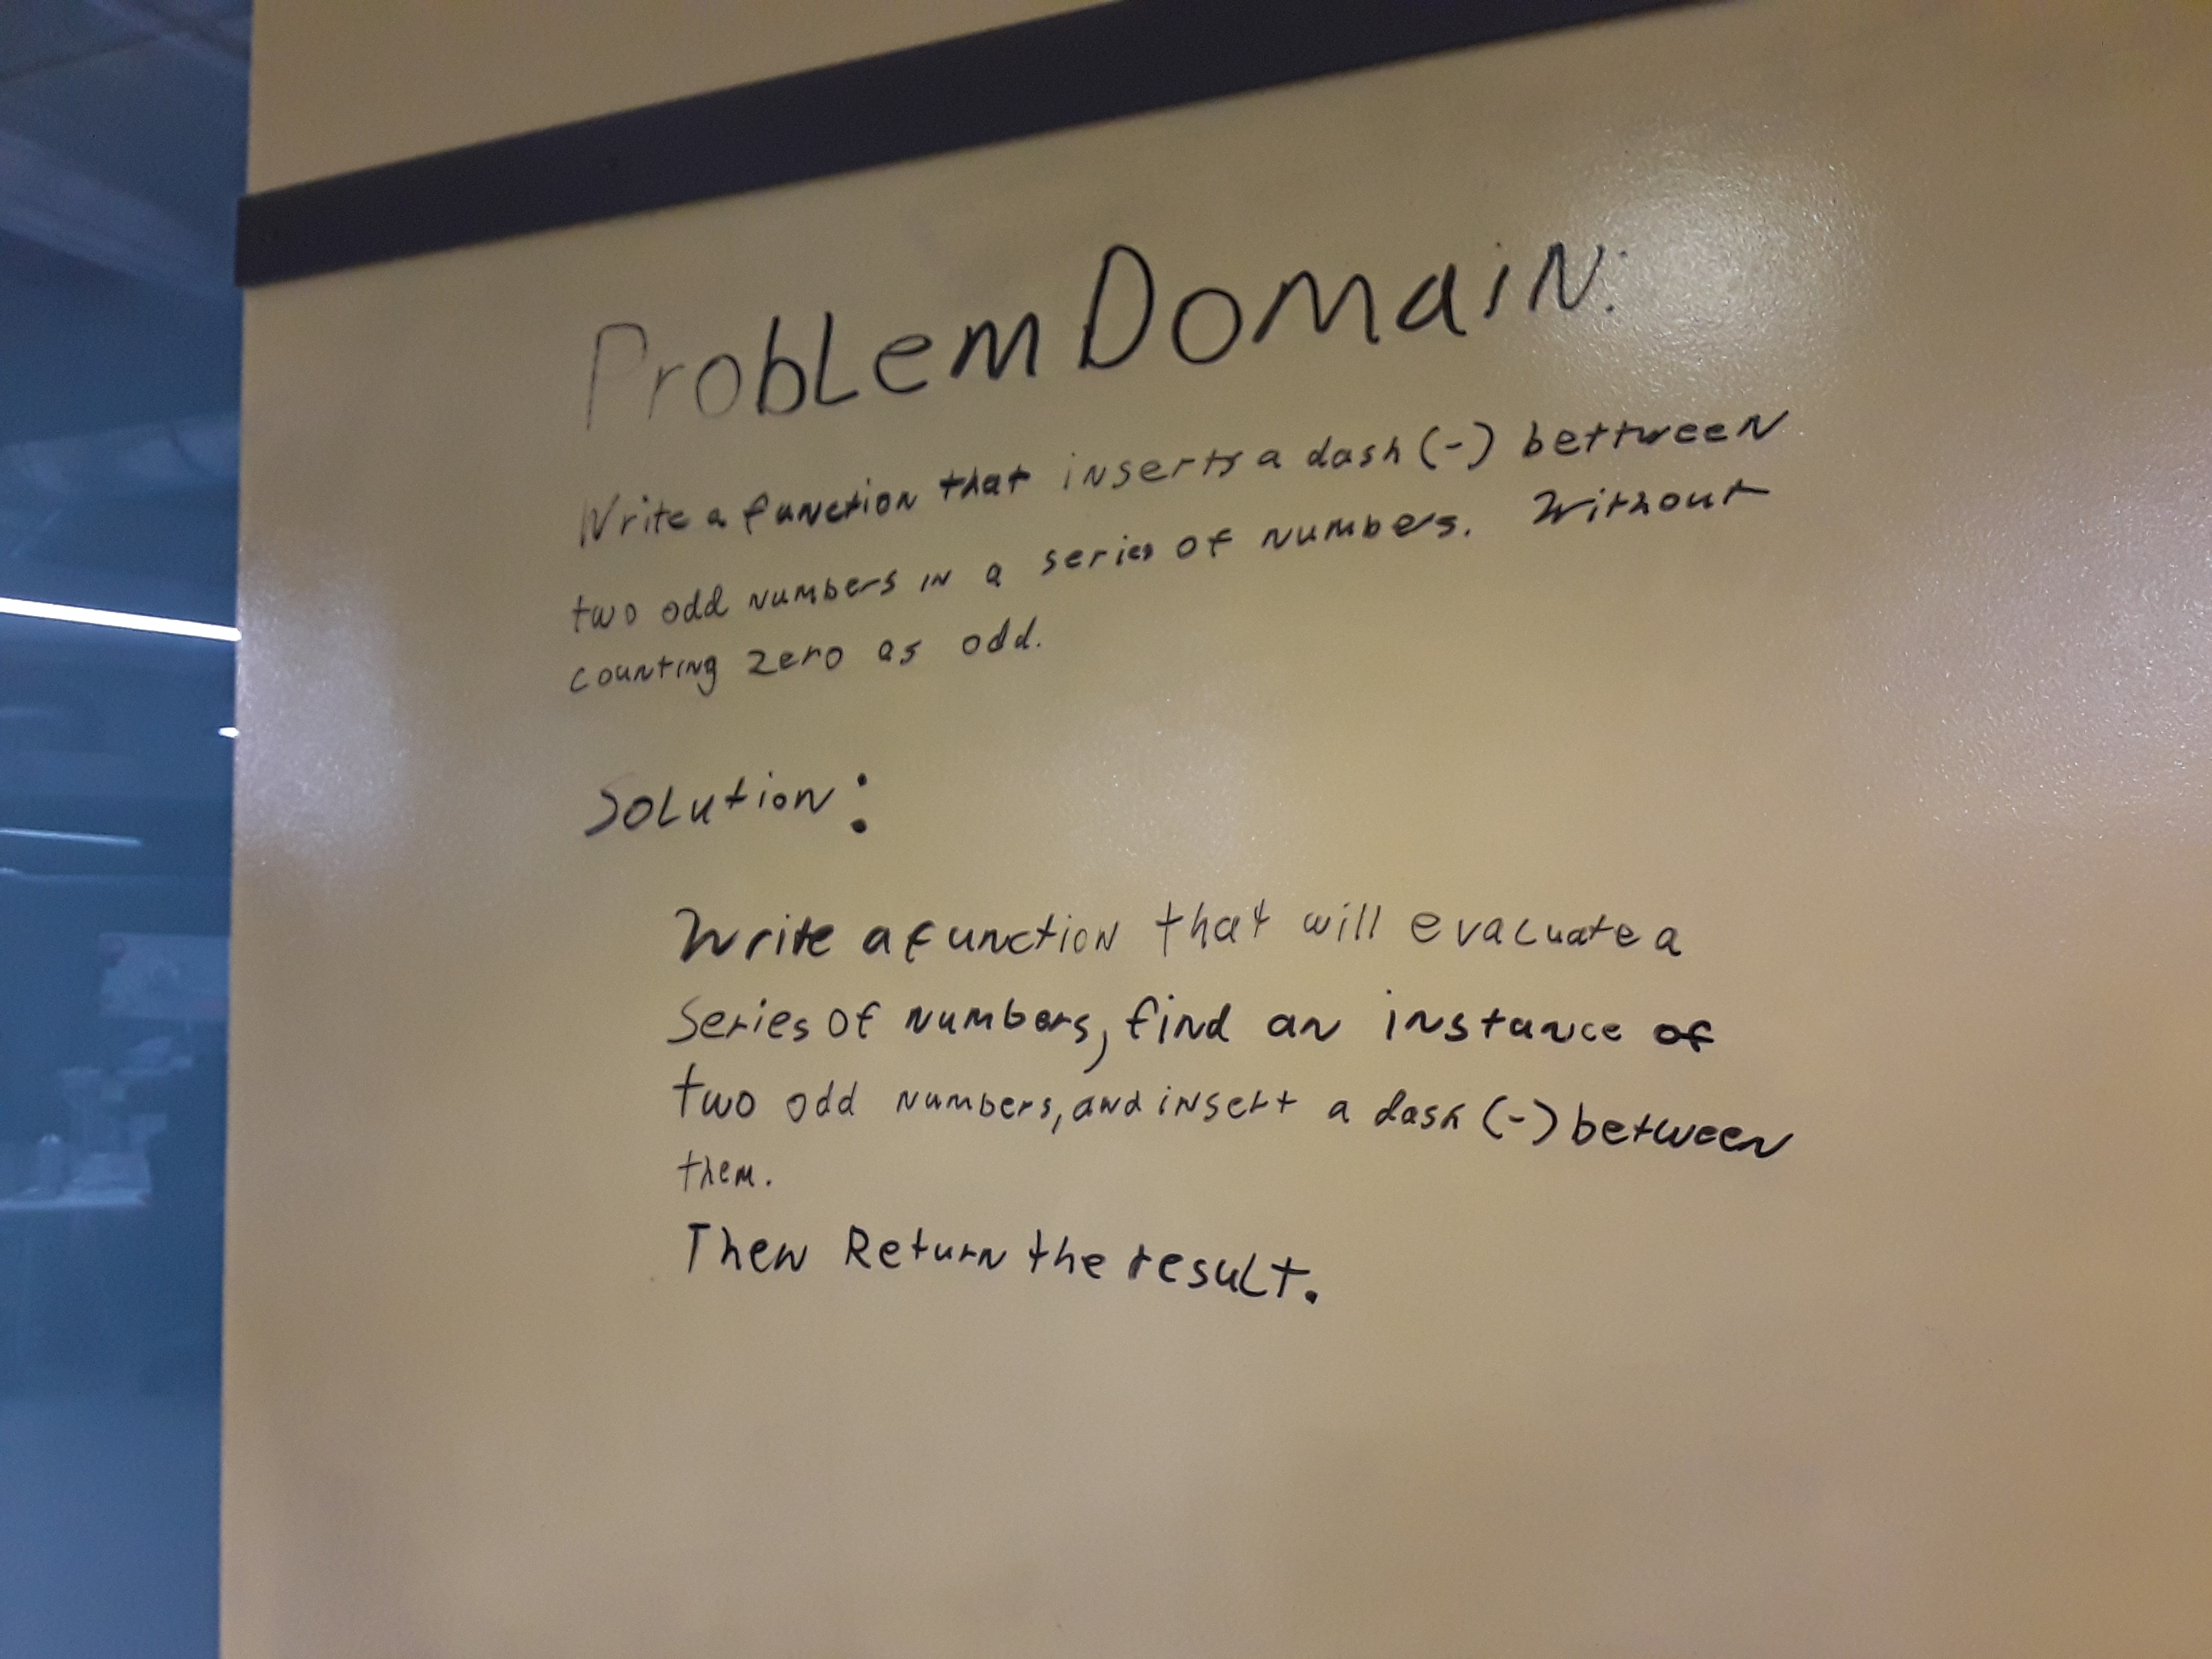 Problem Domain:
Write a function that inserts a dash (-) bettween
two odd numbers in a series of numbers. Without
counting zero as odd.
Solution:
Write a function that will evaluate a
Series of numbers, find an instance of
two odd numbers, and insert a dash (-) between
them.
Then Return the result.